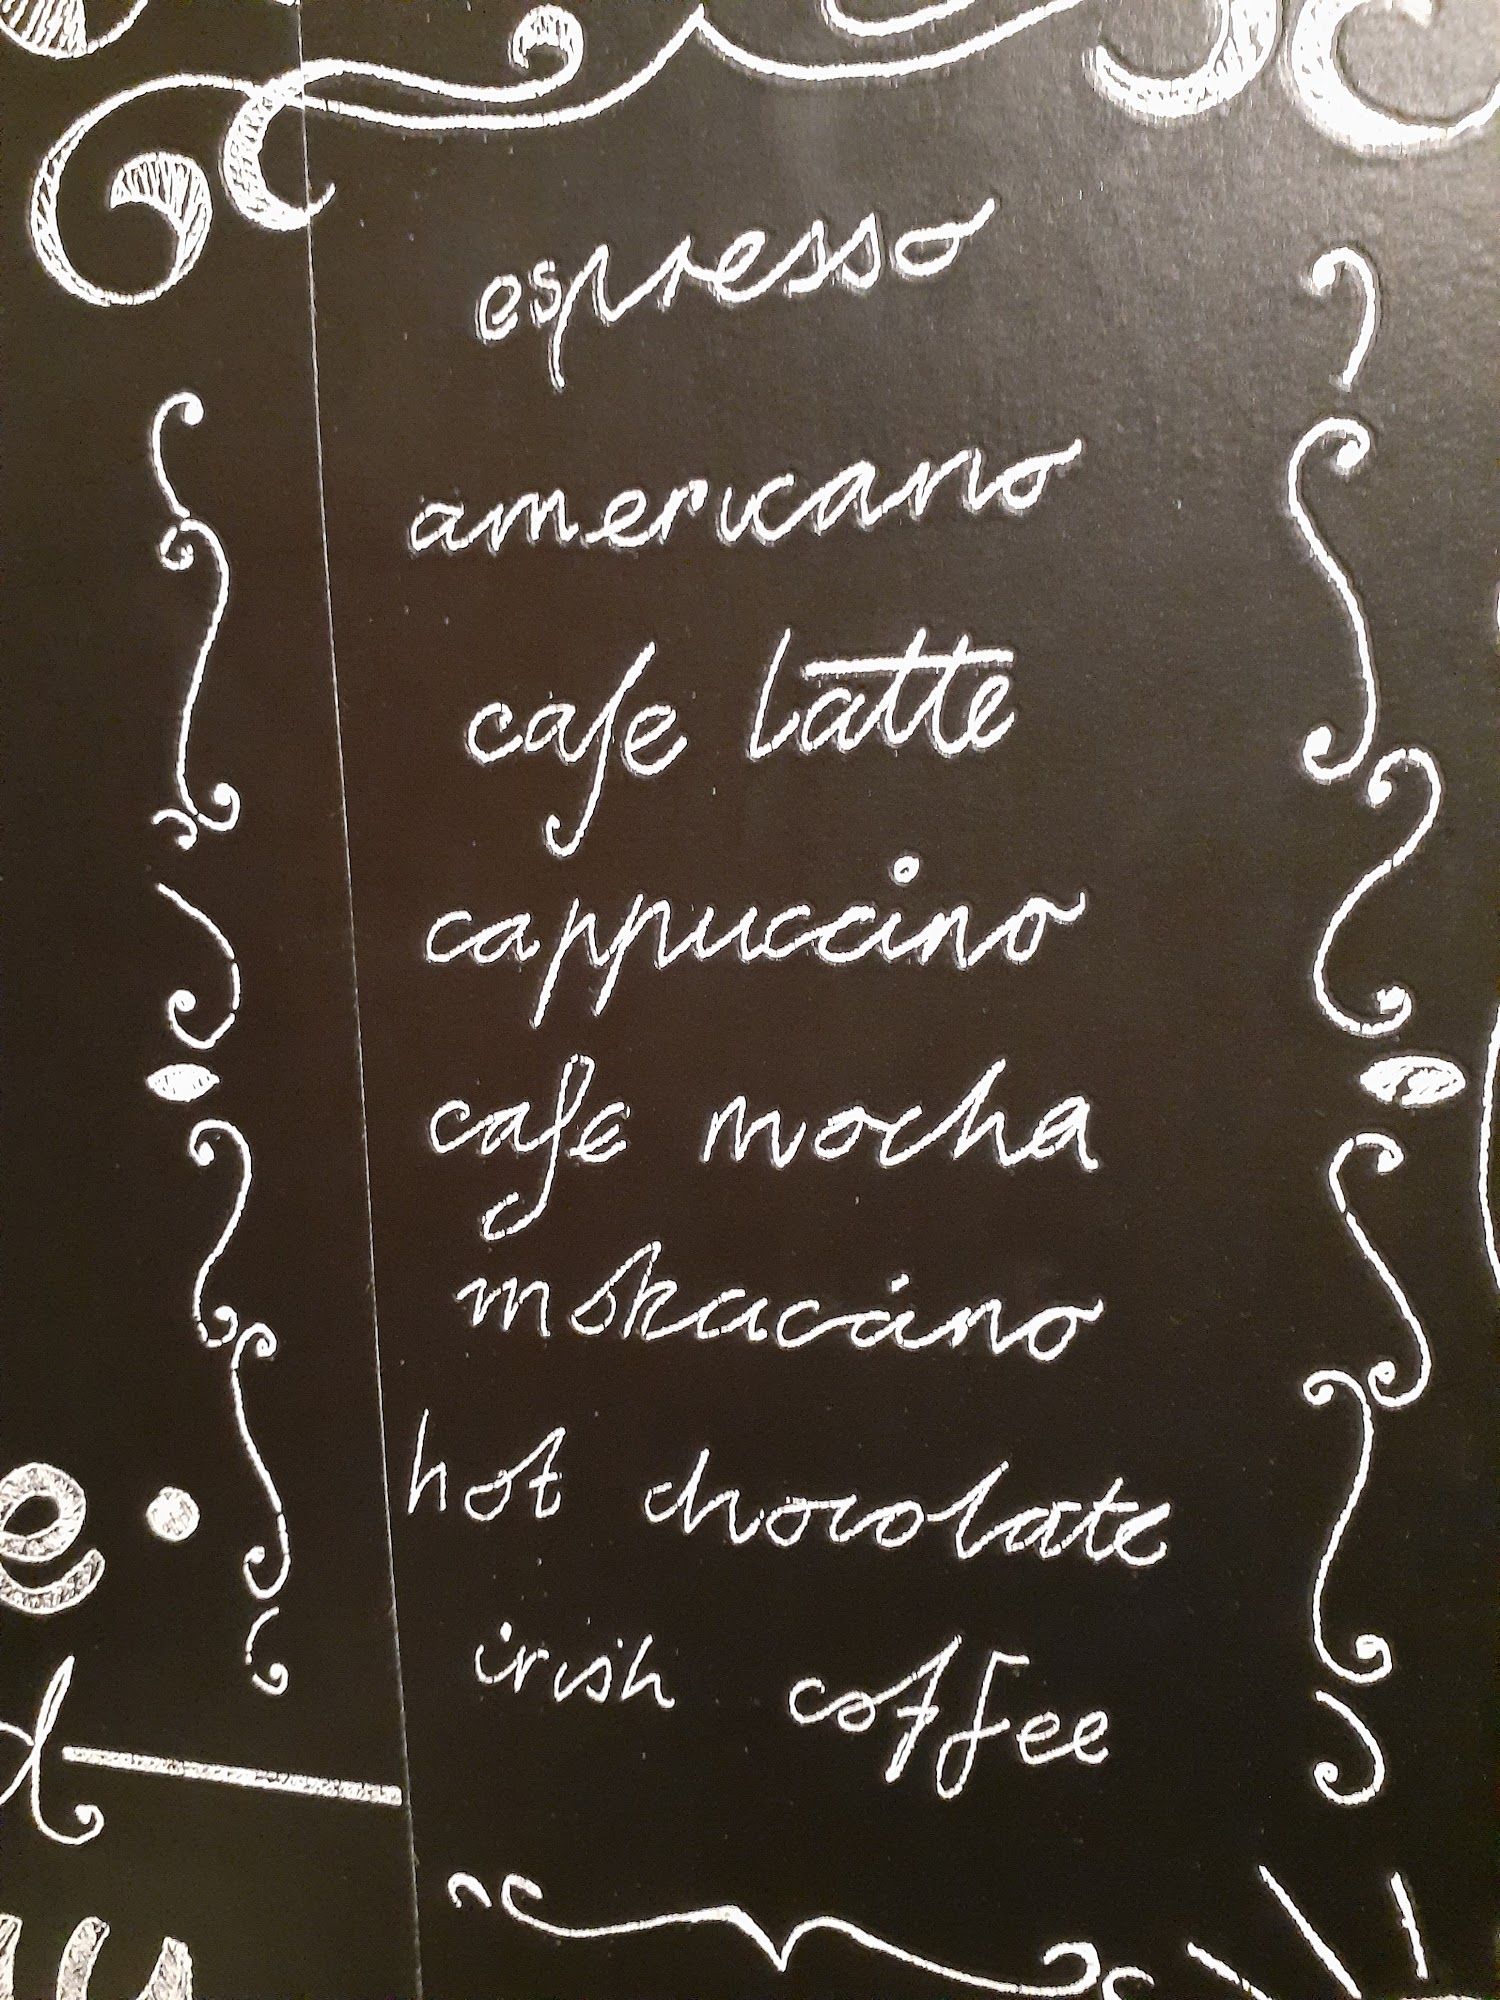 espresso
americano
cafe latte
cappuccino
cafe mocha
mokacino
hot chocolate
irish coffee